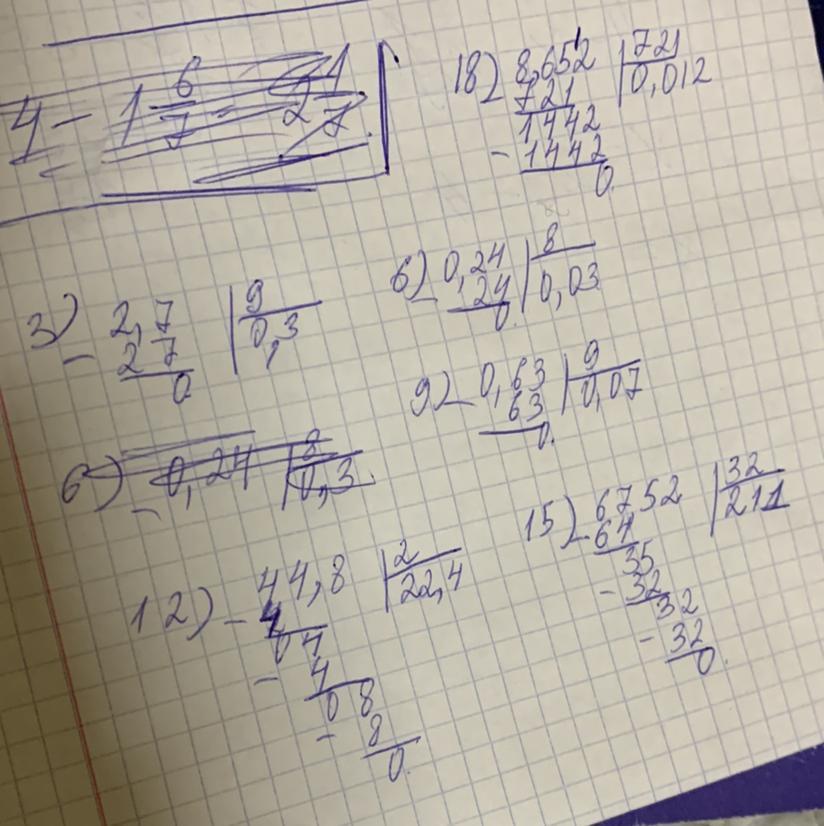 4 - 1 6/7 = 2 1/7
18) 8,652 | 721
721 | 0,012
1442
- 1442
0
3) 2,7 | 9
- 27 | 0,3
0
6) 0,24 | 8
- 24 | 0,03
0
9) - 0,63 | 9
63 | 0,07
0
6) - 0,24 | 8
0,3
12) - 44,8 | 2
4 | 22,4
04
- 4
08
- 8
0
15) - 6752 | 32
64 | 211
35
- 32
32
- 32
0